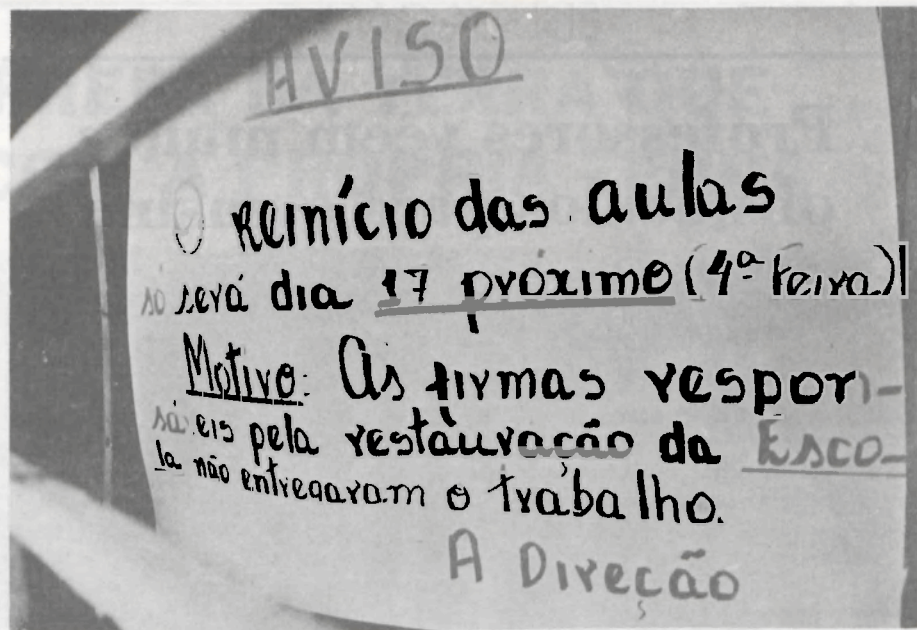 AVISO
O reinício das aulas
só será dia 17 próximo (4ª feira)
Motivo: As firmas respon-
sáveis pela restauração da Esco-
la não entregaram o trabalho.
A Direção